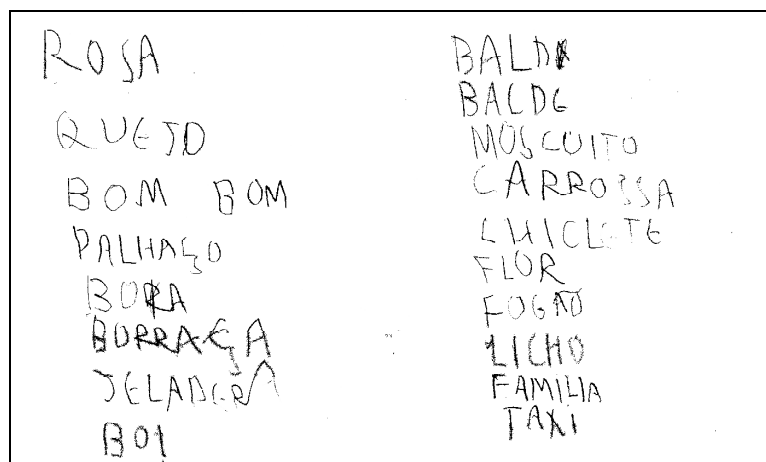 ROSA
QUEJO
BOM BOM
PALHAÇO
BORA
BORRAÇA
JELADERA
BOI
BALDA
BALDE
MOSCUITO
CARROSSA
CHICLETE
FLOR
FOGÃO
LICHO
FAMILIA
TAXI